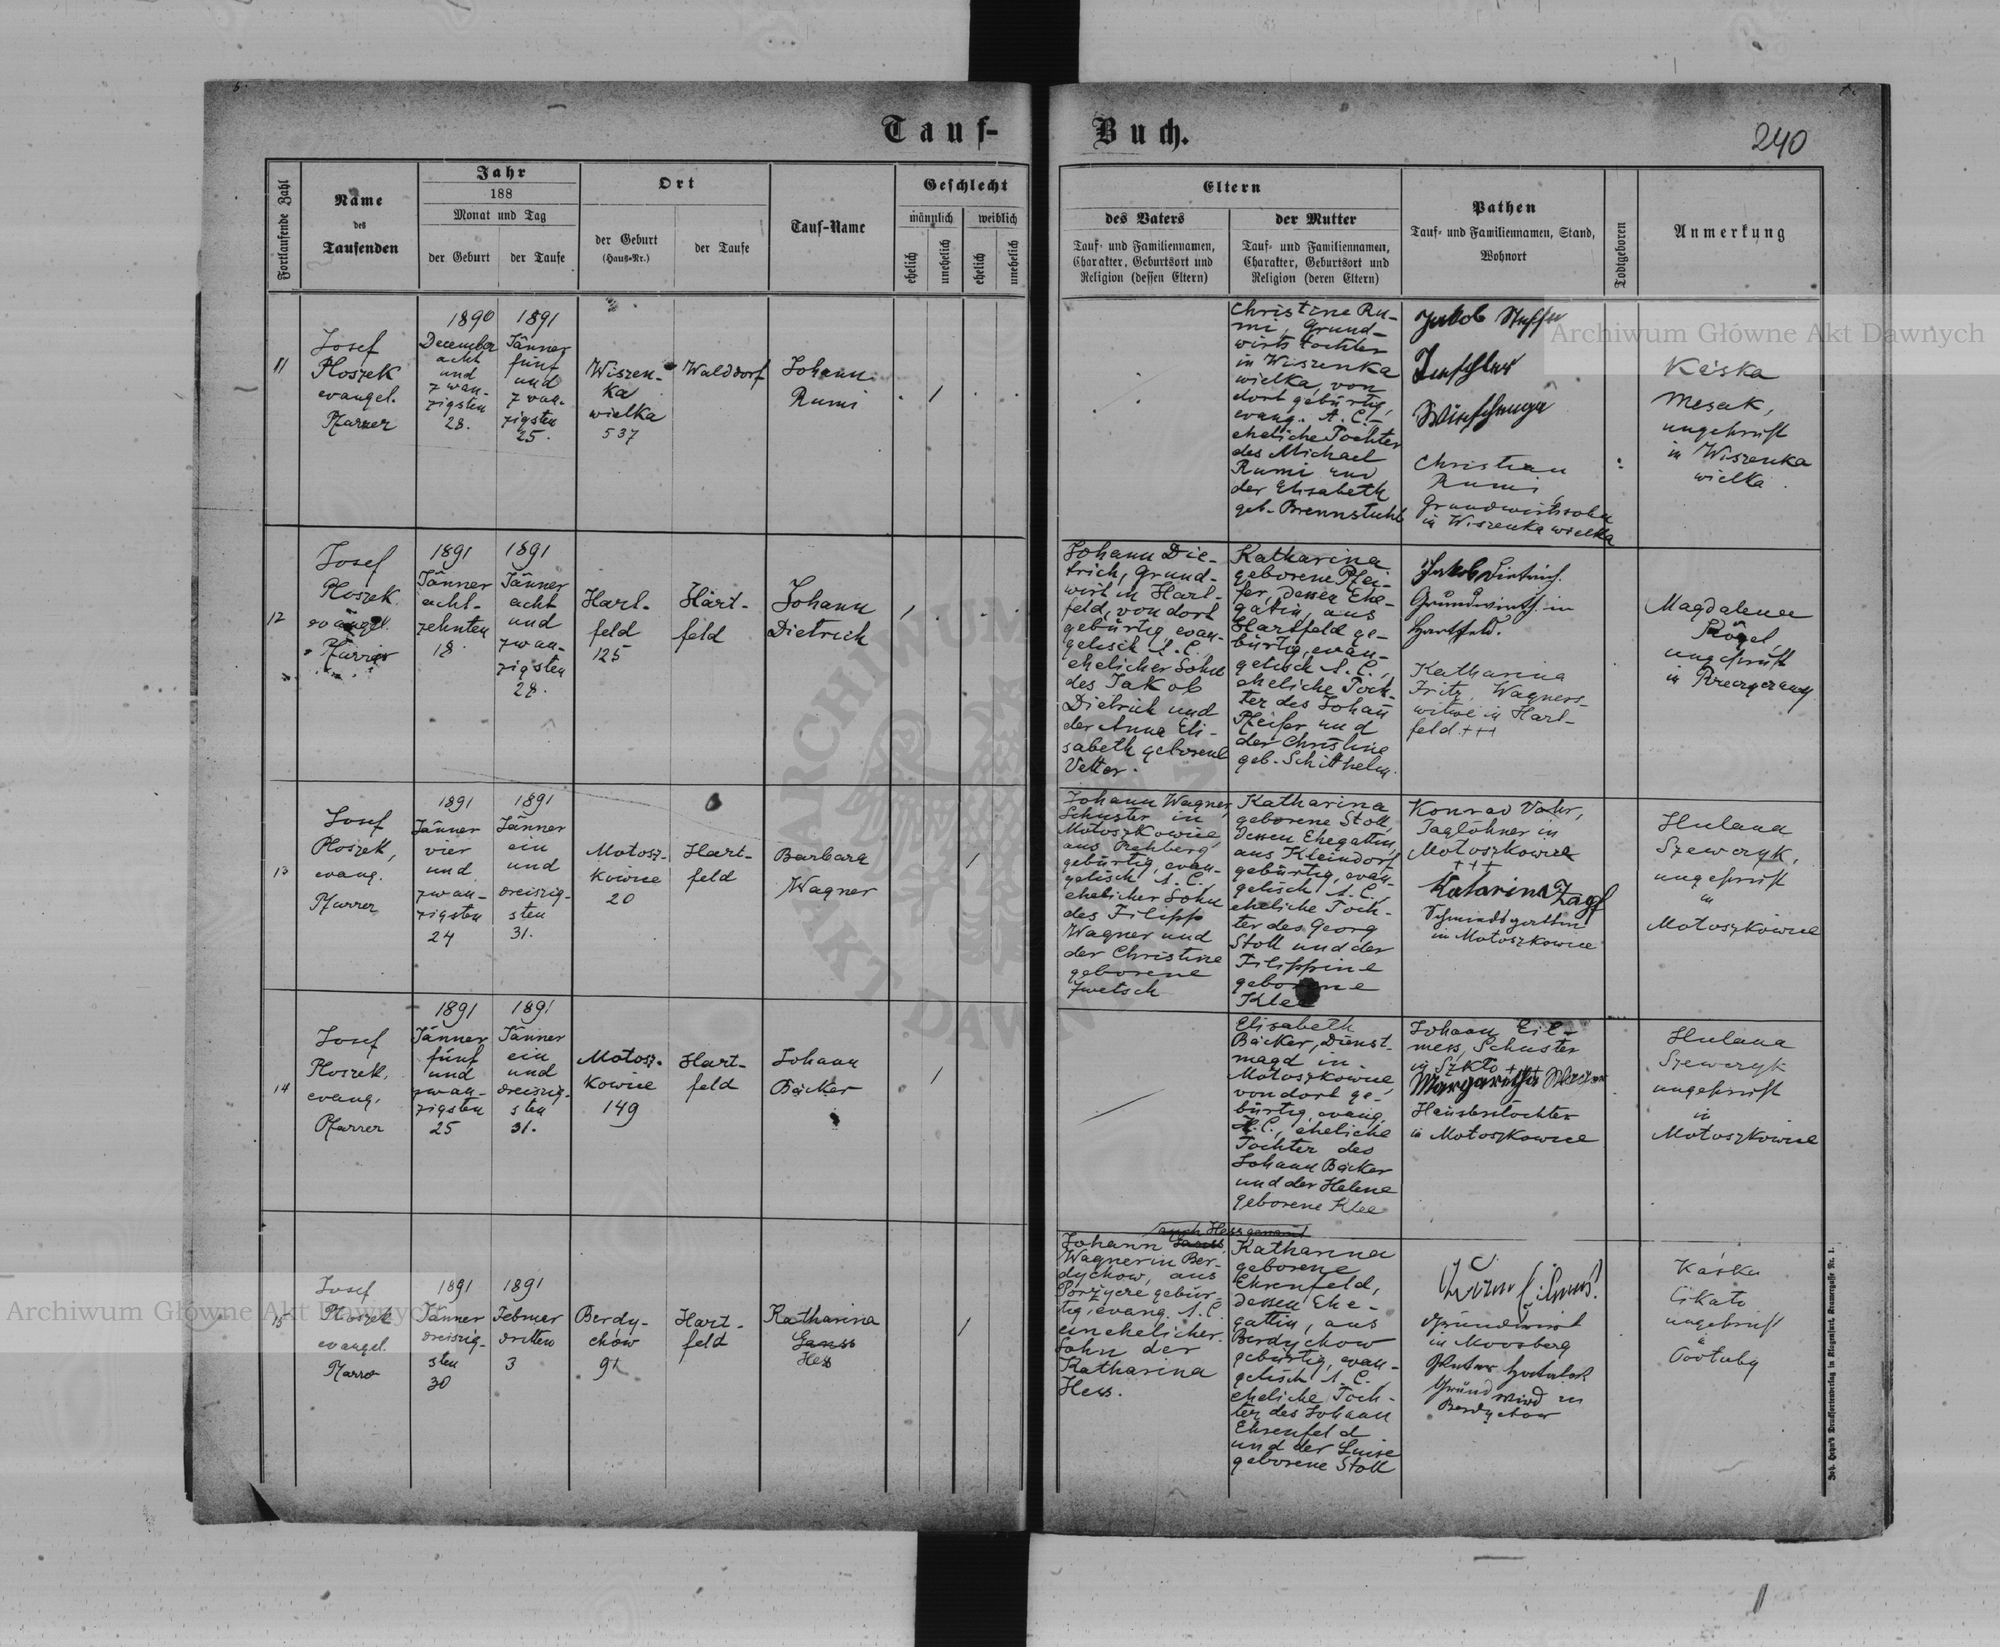 Tauf-
Buch.
240
Fortlaufende Zahl
Name
des
Taufenden
Jahr
188
Monat und Tag
der Geburt
der Taufe
Ort
der Geburt
(Haus-Nr.)
der Taufe
Tauf-Name
Geschlecht
männlich
weiblich
ehelich
unehelich
ehelich
unehelich
Eltern
des Vaters
Tauf- und Familiennamen,
Charakter, Geburtsort und
Religion (dessen Eltern)
der Mutter
Tauf- und Familiennamen,
Charakter, Geburtsort und
Religion (deren Eltern)
Pathen
Tauf- und Familiennamen, Stand,
Wohnort
Todtgeboren
Anmerkung
11
Josef
Ploszek
evangel.
Pfarrer
1890
December
acht
und
zwan-
zigsten
28.
1891
Jänner
fünf
und
zwan-
zigsten
25.
Wiszen-
ka
wielka
537
Walddorf
Johann
Rumi
/
Christine Ru-
mi, Grund-
wirts tochter
in Wiszenka
wielka, von
dort gebürtig,
evang. A. C.
eheliche Tochter
des Michael
Rumi und
der Elisabeth
geb. Brennstuhl
Jakob
Christian
Rumi
Grundwirtssohn
in Wiszenka wielka
Kaska
Mesak,
ungeprüft
in Wiszenka
wielka.
12
Josef
Ploszek
evangel.
Pfarrer
1891
Jänner
acht-
zehnten
18.
1891
Jänner
acht
und
zwan-
zigsten
28.
Hart-
feld
125
Hart-
feld
Johann
Dietrich
/
Johann Die-
trich, Grund-
wirt in Hart-
feld, von dort
gebürtig, evan-
gelisch A. C.,
ehelicher Sohn
des Jakob
Dietrich und
der Anna Eli-
sabeth geborene
Vetter.
Katharina
geborene Pfei-
fer, dessen Ehe-
gatin, aus
Hartfeld ge-
bürtig, evan-
gelisch A. C.,
eheliche Toch-
ter des Johañ
Pfeifer und
der Christine
geb. Schitthelm.
Jakob Dietrich.
Grundwirth in
Hartfeld.
Katharina
Fritz, Wagners-
witwe in Hart-
feld +++
Magdalena
ungeprüft
in
13
Josef
Ploszek,
evang.
Pfarrer
1891
Jänner
vier
und
zwan-
zigsten
24
1891
Jänner
ein
und
dreiszig-
sten
31.
Motosz-
kowice
20
Hart-
feld
Barbara
Wagner
/
Johann Wagner,
Schuster in
Motoszkowice,
aus Rehberg
gebürtig, evan-
gelisch A. C.
ehelicher Sohn
des Filipp
Wagner und
der Christine
geborene
Zwetsch
Katharina
geborene Stoll,
dessen Ehegattin,
aus Kleindorf
gebürtig, evan-
gelisch A. C.,
eheliche Toch-
ter des Georg
Stoll und der
Filippine
geborene
Klee
Konrad Vohr,
Taglöhner in
Motoszkowice
+++
Katarina Zagf
Schmiedsgattin
in Motoszkowice
Hulana
Szewczyk,
ungeprüft
in
Motoszkowice
14
Josef
Ploszek,
evang.
Pfarrer
1891
Jänner
fünf
und
zwan-
zigsten
25
1891
Jänner
ein
und
dreiszig-
sten
31.
Motosz-
kowice
149
Hart-
feld
Johann
Bäcker
/
Elisabeth
Bäcker, Dienst-
magd in
Motoszkowice,
von dort ge-
bürtig, evang.
H. C., eheliche
Tochter des
Johann Bäcker
und der Helene
geborene Klee
Johann Eil-
mess, Schuster
in Szkło +++
Margaretha
Häuslerstochter
in Motoszkowice
Hulana
Szewczyk
ungeprüft
in
Motoszkowice
15
Josef
Ploszek
evangel.
Pfarrer
1891
Jänner
dreiszig-
sten
30
1891
Februar
dritten
3
Berdy-
chów
91
Hart-
feld
Katharina
Ganss
Hess
/
auch Hess genannt
Johann Ganss,
Wagner in Ber-
dychow, aus
Porzycze gebür-
tig, evang. A. C.
unehelicher
Sohn der
Katharina
Hess.
Katharina
geborene
Ehrenfeld,
dessen Ehe-
gattin, aus
Berdychow
gebürtig, evan-
gelisch A. C.,
eheliche Toch-
ter des Johann
Ehrenfeld
und der Luise
geborene Stoll
Grundwirt
in Moosberg
in
Berdychow
Kaska
ungeprüft
Joh. Heyn's Drucksortenverlag in Klagenfurt, Kramergasse Nr. 1.
Archiwum Główne Akt Dawnych
Archiwum Główne Akt Dawnych
ARCHIWUM
AKT DAWNYCH